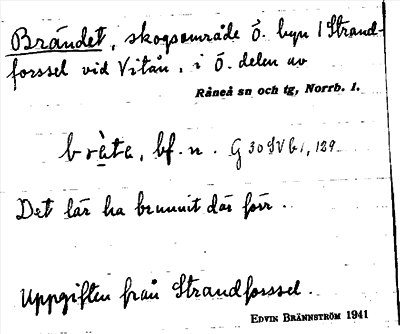 Brändet, skogsområde ö. byn i Strand-
forssel vid Vitån, i ö. delen av
Råneå sn och tg, Norrb. l.
bràta, bf. n. G 30 IV b1, 129
Det lär ha brunnit där förr.
Uppgiften från Strandforssel.
EDVIN BRÄNNSTRÖM 1941